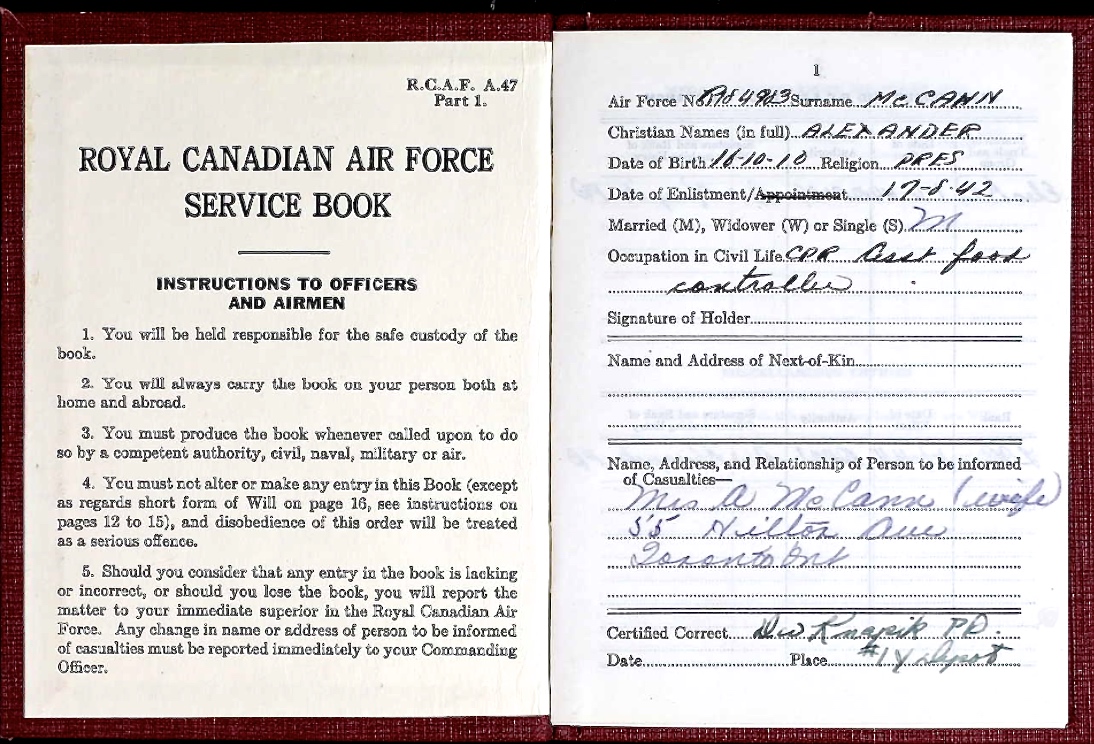 R.C.A.F. A.47
Part 1.
ROYAL CANADIAN AIR FORCE
SERVICE BOOK
INSTRUCTIONS TO OFFICERS
AND AIRMEN
1. You will be held responsible for the safe custody of the
book.
2. You will always carry the book on your person both at
home and abroad.
3. You must produce the book whenever called upon to do
so by a competent authority, civil, naval, military or air.
4. You must not alter or make any entry in this Book (except
as regards short form of Will on page 16, see instructions on
pages 12 to 15), and disobedience of this order will be treated
as a serious offence.
5. Should you consider that any entry in the book is lacking
or incorrect, or should you lose the book, you will report the
matter to your immediate superior in the Royal Canadian Air
Force. Any change in name or address of person to be informed
of casualties must be reported immediately to your Commanding
Officer.
1
Air Force No. Surname McCANN
Christian Names (in full) ALEXANDER
Date of Birth 16-10-10 Religion PRES
Date of Enlistment/Appointment 17-8-42
Married (M), Widower (W) or Single (S) M
Occupation in Civil Life CPR Asst food
controller
Signature of Holder
Name and Address of Next-of-Kin
Name, Address, and Relationship of Person to be informed
of Casualties—
Mrs A McCann (wife)
55 Hilton Ave
Toronto Ont
Certified Correct Knapik
Date Place Depot